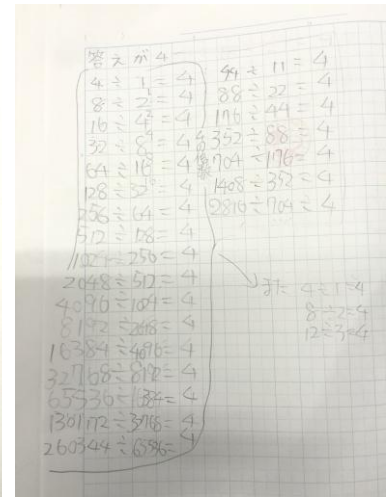 答えが4
4÷1=4
8÷2=4
16÷4=4
32÷8=4
64÷16=4
128÷32=4
256÷64=4
512÷128=4
1024÷256=4
2048÷512=4
4096÷1024=4
8192÷2048=4
16384÷4096=4
32768÷8192=4
65536÷16384=4
130172÷32768=4
260344÷65536=4
44÷11=4
88÷22=4
176÷44=4
352÷88=4
704÷176=4
1408÷352=4
2816÷704=4
4÷1=4
8÷2=4
12÷3=4